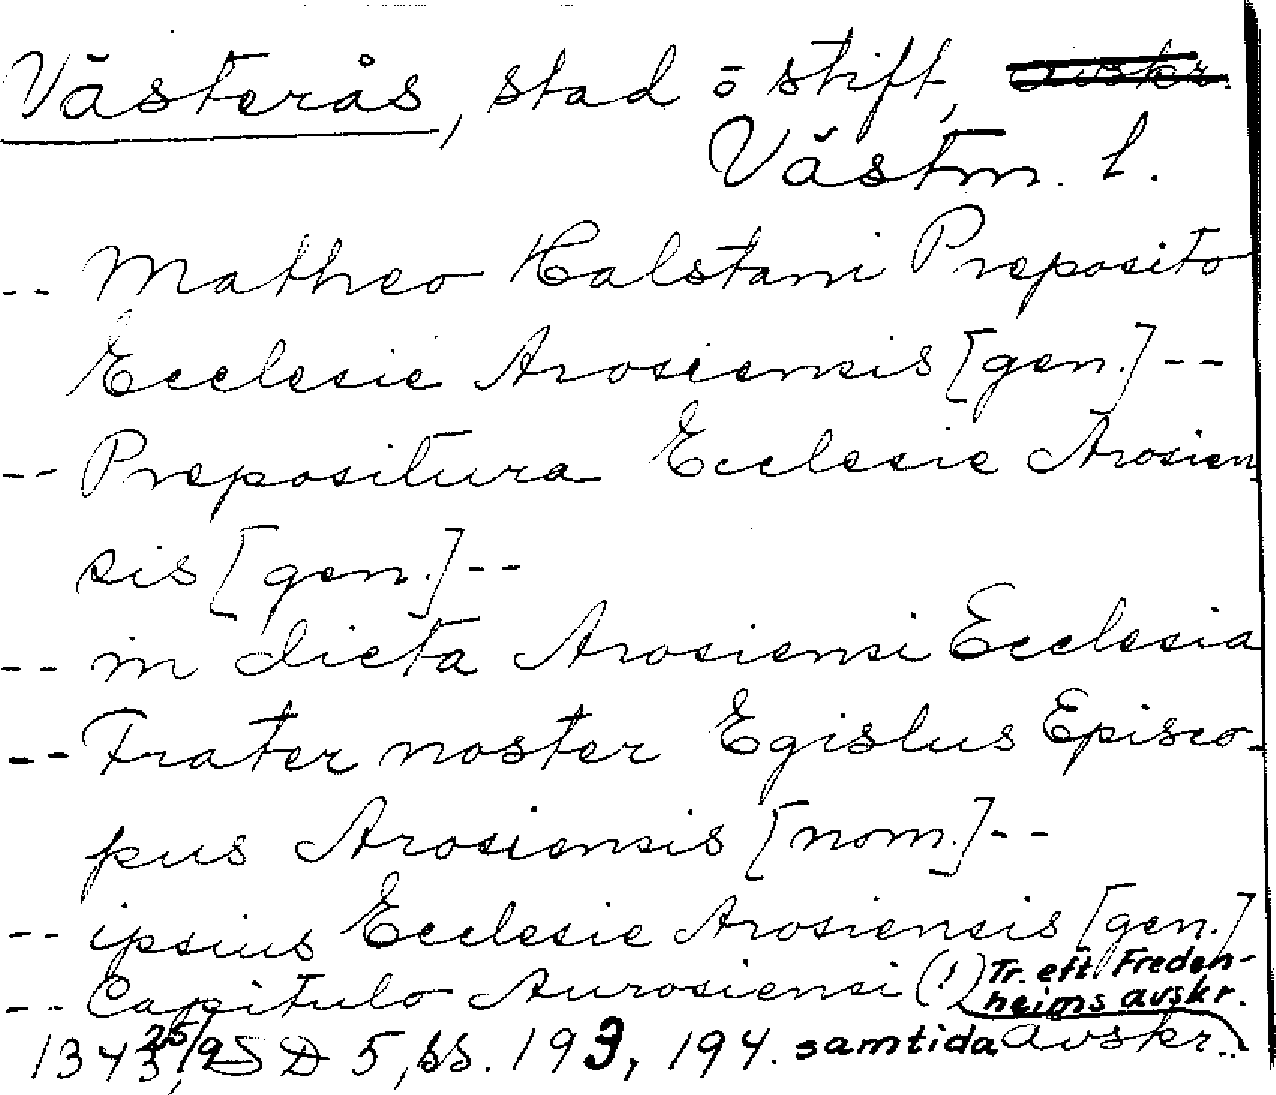 Västerås, stad o stift, avskr.
Västm. l.
-- Matheo Halstani Preposito
Ecclesie Arosiensis [gen.] --
-- Prepositura Ecclesie Arosien
sis [gen.] --
-- in dicta Arosiensi Ecclesia
-- Frater noster Egislus Episco-
pus Arosiensis [nom.] --
-- ipsius Ecclesie Arosiensis [gen.]
-- Capitulo Aurosiensi (!) Tr. eft. Freden-
heims avskr.
1343 25/9 SD 5, ss. 193, 194. samtida avskr..